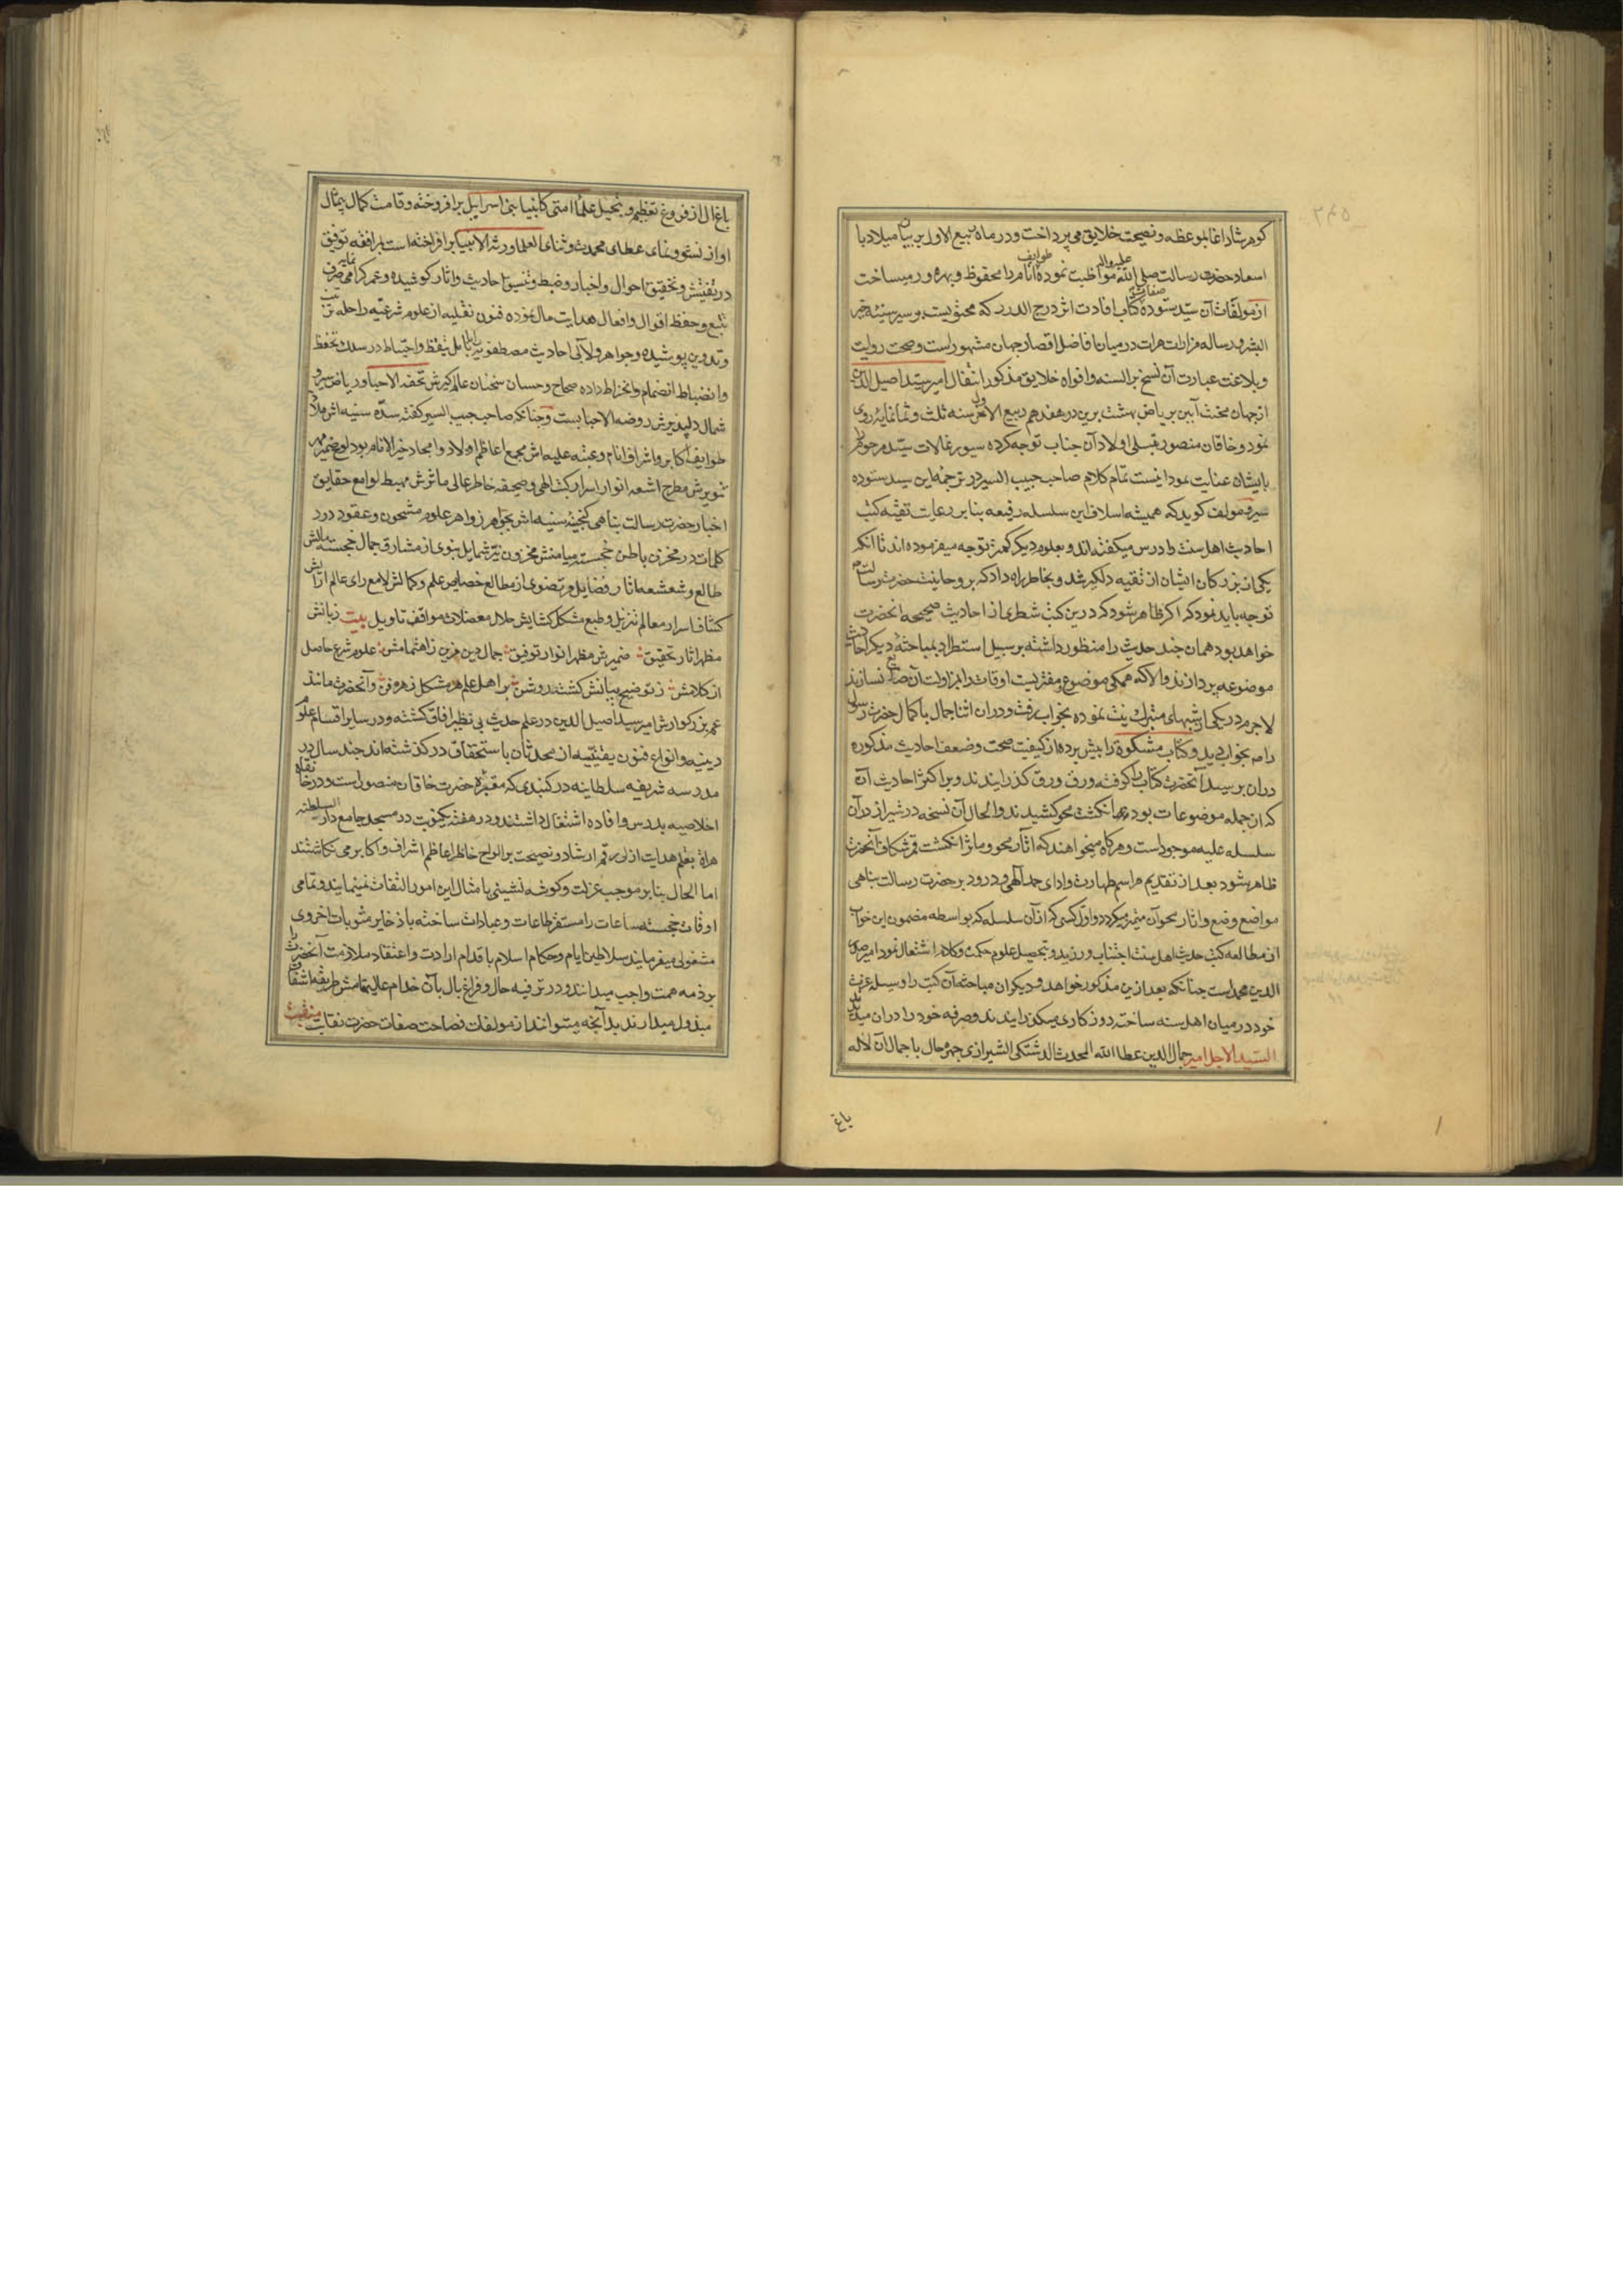 کوهرشاد اغا بموعظه و نصیحت خلایق می پرداخت و در ماه ربیع الاول بر بیان میلاد با
اسعاد حضرت رسالت صلی الله علیه واله مواظبت نموده طوایف انام را محفوظ و بهره ور میساخت
از مولفات آن سید ستوده صفات کتاب افادت اثر درج الدرر که محتویست بر سیر سنیه خیر
البشر و رساله مزارات هرات در میان افاضل اقصار جهان مشهور است و صحت روایت
و بلاغت عبارت آن نسخ بر السنه و افواه خلایق مذکور انتقال امیر سید اصیل الدین
ازجهان محنت آیین بریاض بهشت برین در هفدهم ربیع الاخر سنه ثلث و ثمانمایه روی
نمود و خاقان منصور قبلی اولاد آن جناب توجه کرده سیورغالات سید مرحوم را
بایشان عنایت نمود اینست تمام کلام صاحب حبیب السیر در ترجمه این سید ستوده
سیر و مولف کوید که همیشه اسلاف این سلسله رفیعه بنابر رعایت تقیه کتب
احادیث اهل سنت را درس میکفته اند و بعلوم دیکر کمتر توجه میفرموده اند تا آنکه
یکی از بزرکان ایشان از تقیه دلکیر شد و بخاطر راه داد که بروحانیت حضرت رسالت
توجه باید نمود که اکر ظاهر شود که درین کتب شطری از احادیث صحیحه انحضرت
خواهد بود همان چند حدیث را منظور داشته بر سبیل استطراد بمباحثه دیکر احادیث
موضوعه پردازند والا که همکی موضوع و مفتریست اوقات را بمزاولت آن ضایع نسازند
لاجرم در یکی از شبهای متبرک نیت نموده بخواب رفت و در ان اثنا جمال با کمال حضرت رسول
را م بخواب دید و کتاب مشکوة را پیش برده از کیفیت صحت و ضعف احادیث مذکوره
دران پرسید آنحضرت کتاب را کرفته ورق ورق کذرانیدند و بر اکثر احادیث آن
که ازجمله موضوعات بود انکشت محو کشیدند والحال آن نسخه در شیراز در آن
سلسله علیه موجود است و هرکاه میخواهند که اثار محو و ماثر انکشت قمر شکاف آنحضرت
ظاهر شود بعد از تقدیم مراسم طهارت و ادای حمد آلهی و درود بر حضرت رسالت پناهی
مواضع وضع و اثار محو آن متمیز میکردد و اول کسی که از آن سلسله که بواسطه مضمون این خواب
از مطالعه کتب حدیث اهل سنت اجتناب ورزید و بتحصیل علوم حکمت و کلام اشتغال نمود امیر صدر
الدین محمد است چنانکه بعد ازین مذکور خواهد و دیکران مباحثه آن کتب را وسیله عزت
خود در میان اهل سنه ساخته روزکاری میکذرانیدند و صرفه خود را دران میدیدند
السید الاجل امیر جمال الدین عطا الله المحدث الدشتکی الشیرازی چهره حال با جمال آن لاله
باغ
باغ ال از فروغ تعظیم و تبجیل علما امتی کانبیا بنی اسرایل برافروخته و قامت کمال بیمثال
او از نشو و نمای عطای محدث و ثنای العلما ورثه الانبیا برافراخته است برافقه توفیق
در تفتیش و تحقیق احوال و اخبار و ضبط و تنسیق احادیث و اثار کوشیده و عمر کرامی صرف
تتبع و حفظ اقوال و افعال هدایت مال نموده فنون نقلیه از علوم شرعیه را حله
و تدوین پوشیده و جواهر و لالی احادیث مصطفویه را بانامل تیقظ و احتیاط در سلک تحفظ
و انضباط انضمام و انخراط داده صحاح و حسان سخنان عالم کیرش تحفه الاحبا و ریاض سیر و
شمال دلپذیرش روضه الاحبابست و چنانکه صاحب حبیب السیر کفته سده سنیه اش ملاذ
طوایف اکابر و اشراف انام و عتبه علیه اش مجمع اعاظم اولاد و امجاد خیر الانام بود لوح ضمیر مهر
تنویرش مطرح اشعه انوار اسرار کتب الهی و صحیفه خاطر عالی ماثرش مهبط لوامع حقایق
اخبار حضرت رسالت پناهی کنجینه سینه اش بجواهر زواهر علوم مشحون و عقود درر
کلمات در مخزن باطن خجسته میامنش مخزون نیر شمایل نبوی از مشارق جمال خجسته مالش
طالع و شعشعه اثار فضایل مرتضوی از مطالع خصایص علم و کمالش لامع رای عالم ارایش
کشاف اسرار معالم تنزیل و طبع مشکل کشایش حلال معضلات مواقف تاویل بیت زبانش
مظهر اثار تحقیق ضمیرش مظهر انوار توفیق جمال دین مزین زاهتمامش علوم شرع حاصل
از کلامش ز توضیح بیانش کشته روشن بر اهل علم هر مشکل ز هر فن و آنحضرت مانند
عم بزرکوارش امیر سید اصیل الدین در علم حدیث بی نظیر افاق کشته و در سایر اقسام علوم
دینیه و انواع فنون یقینیه از محدثان باستحقاق در کذشته اند چند سال در
مدرسه شریفه سلطانیه در کنبدی که مقبره حضرت خاقان منصور است و در خانقاه
اخلاصیه بدرس و افاده اشتغال داشتند و در هفته یکنوبت در مسجد جامع دار السلطنه
هراة بقلم هدایت ازلی رقم ارشاد و نصیحت بر الواح خاطر اعاظم اشراف و اکابر می نکاشتند
اما الحال بنابر موجب عزلت و کوشه نشینی بامثال این امور التفات نمینمایند و تمامی
اوقات خجسته ساعات را مستغرق طاعات و عبادات ساخته باذخایر مثوبات اخروی
مشغولی میفرمایند سلاطین ایام و حکام اسلام باقدام ارادت و اعتقاد ملازمت آنحضرت را
بر ذمه همت واجب میدانند و در ترفیه حال و فراغ بال بآن خدام عالیمقامش طریقه اشفاق
مبذول میدارند بد آنچه میتوانند از مولفات فصاحت صفات حضرت نقابت منقبت